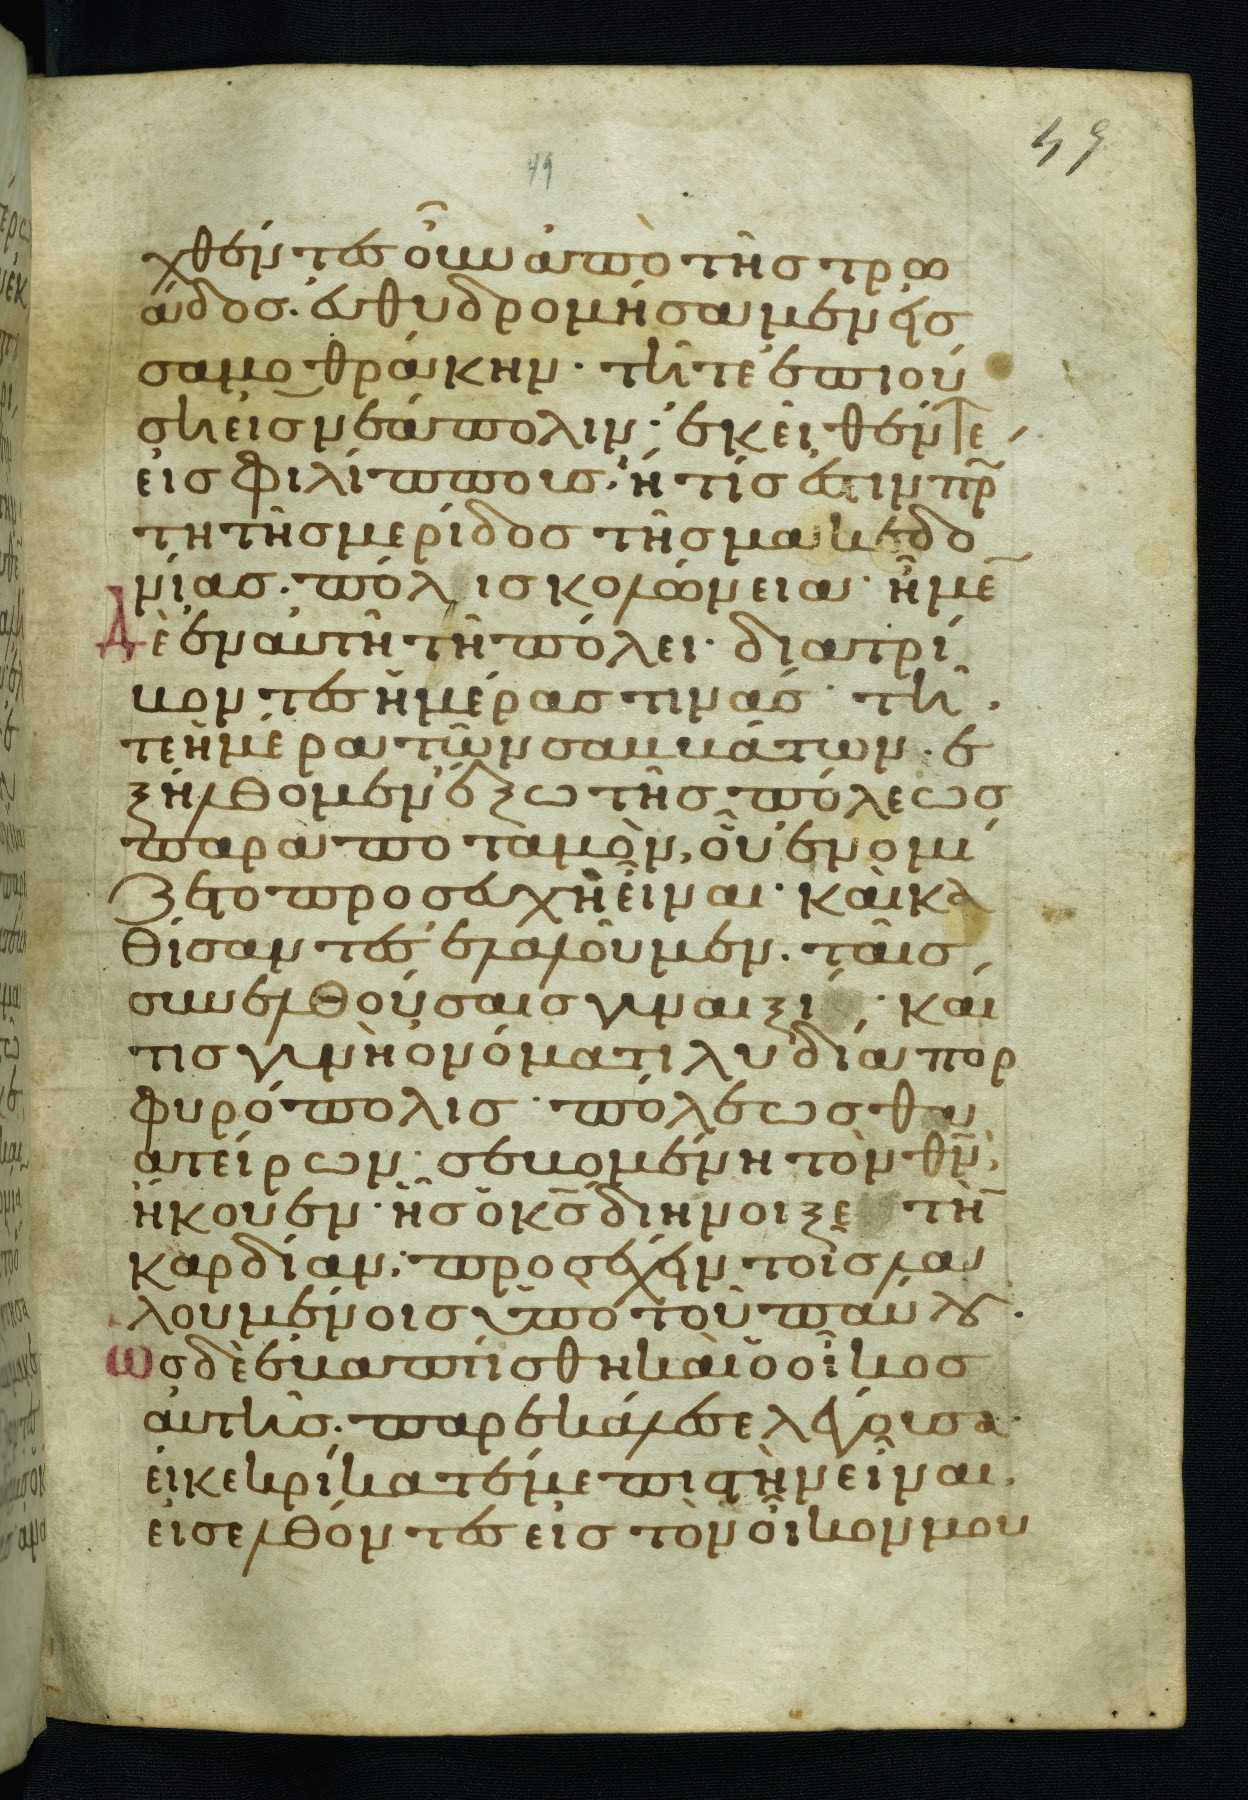 49
49
χθέντες οὖν ἀπὸ τῆς τρω
άδος. εὐθυδρομήσαμεν εἰς
σαμοθράκην· τῆ τε ἐπιού
ση εἰς νεάπολιν· ἐκεῖθέν τε
εἰς φιλίππους· ἥτις ἐστιν πρ
τη τῆς μερίδος τῆς μακεδο
νίας. πόλις κολώνεια· ἦμε
δὲ ἐν αὐτῆ τῆ πόλει· διατρί
βοντες ἡμέρας τινάς· τῆ
τε ἡμέρα τῶν σαββάτων. ἐ
ξήλθομεν ἔξω τῆς πόλεως
παρὰ ποταμὸν, οὗ ἐνομί
ζετο προσευχὴ εἶναι· καὶ κα
θίσαντες ἐλαλοῦμεν. ταῖς
συνελθούσαις γυναιξί· καί
τις γυνὴ ὀνόματι λυδία πορ
φυρόπολις· πόλεως θυ
ατείρων· σεβομένη τὸν θν̄,
ἤκουεν· ἧς ὁ κς̄ διήνοιξε τὴ
καρδίαν· προσέχειν τοῖς λα
λουμένοις ὑπὸ τοῦ παύλου.
ὡς δὲ ἐβαπτίσθη καὶ ὁ οἶκος
αὐτῆς. παρεκάλεσε λέγουσα·
εἰ κεκρίκατέ με πιστὴν εἶναι.
εἰσελθόντες εἰς τὸν οἶκον μου